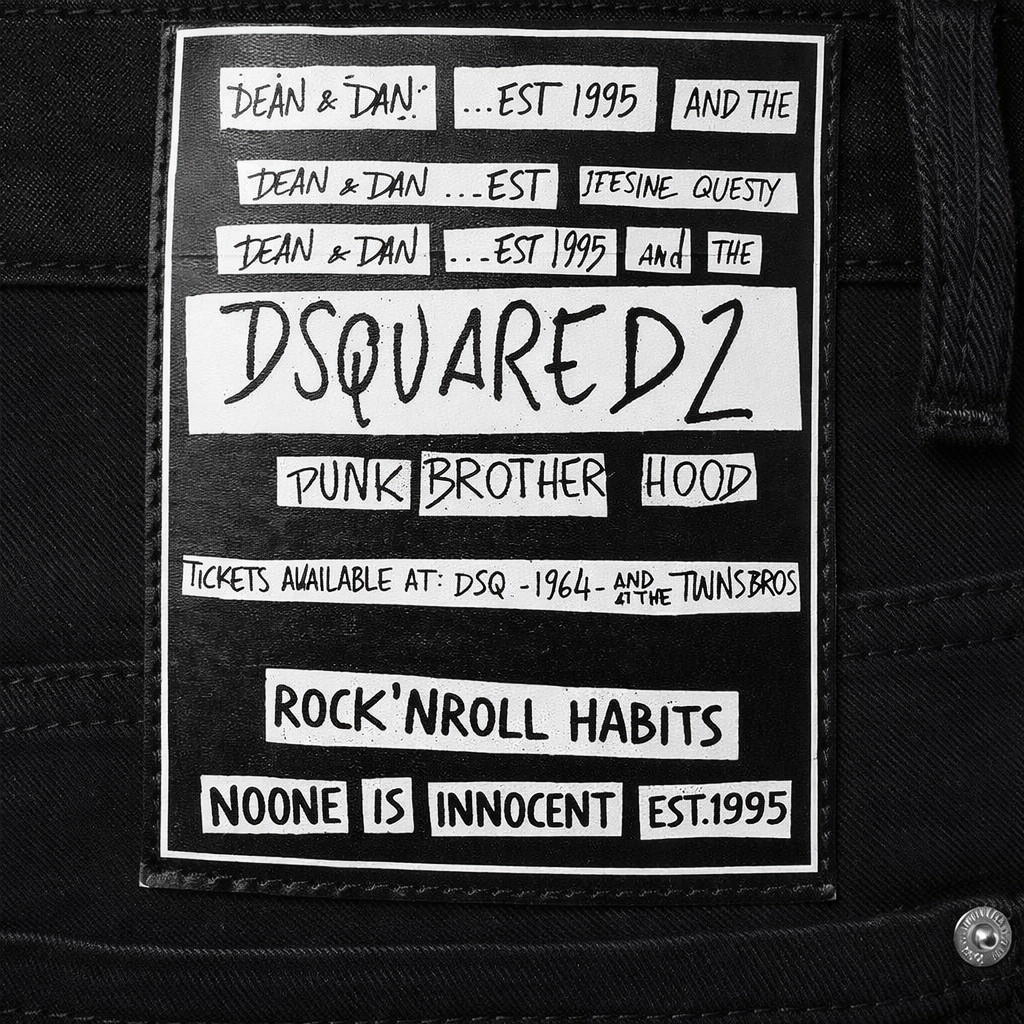 DEAN & DAN ...EST 1995 AND THE
DEAN & DAN ...EST JFESINE QUESTY
DEAN & DAN ...EST 1995 ANd THE
DSQUARED2
PUNK BROTHER HOOD
TICKETS AVAILABLE AT: DSQ -1964- AND AT THE TWNSBROS
ROCK'NROLL HABITS
NOONE IS INNOCENT EST.1995